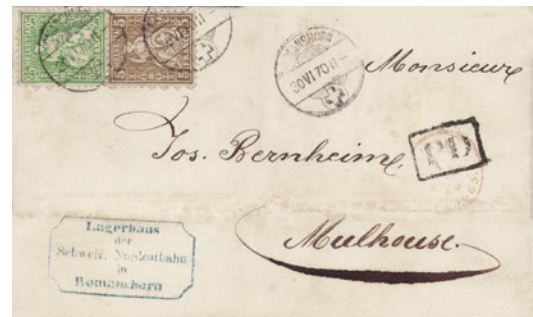 25
5
5
ROMANSHORN
30 VI 70 11 –
Monsieur
Jos. Bernheim,
PD
Mulhouse.
Lagerhaus
der
Schweiz. Nordostbahn
in
Romanshorn